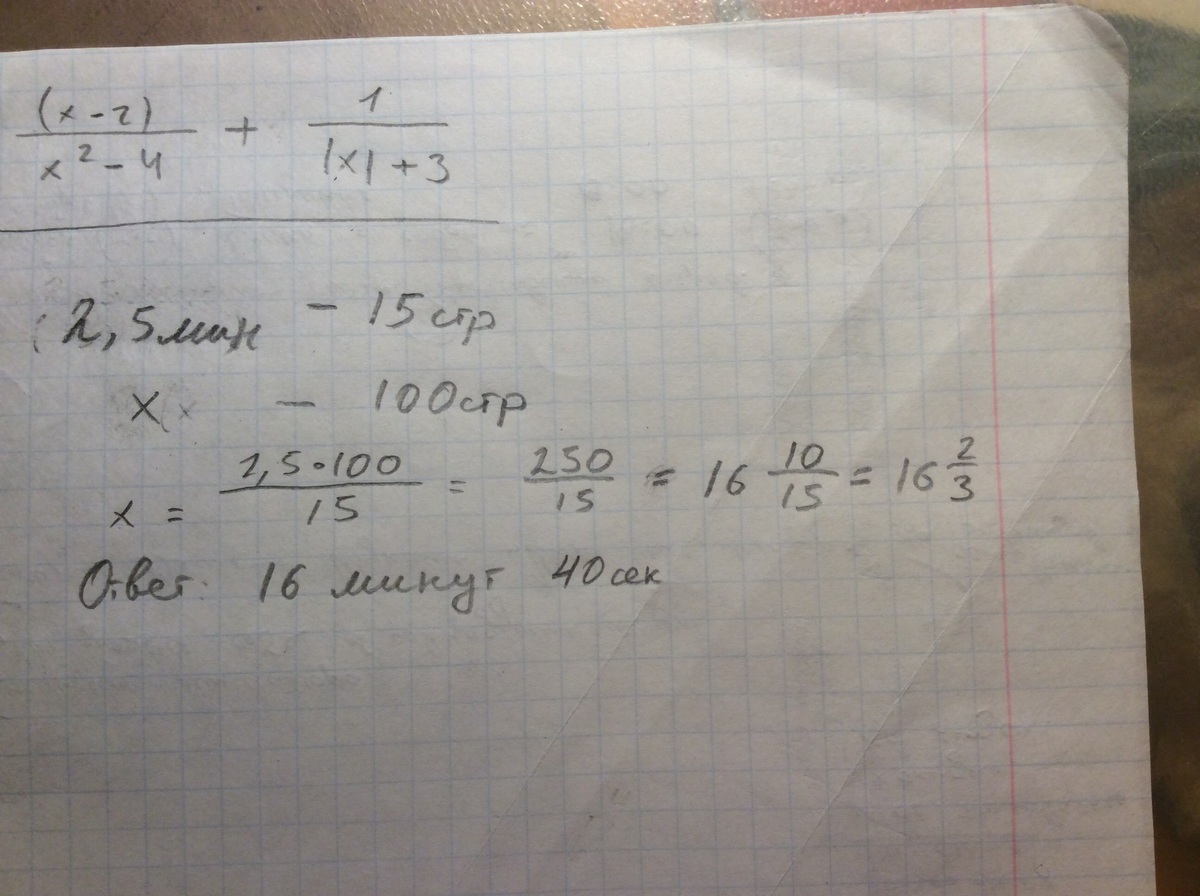 (x-2)/(x²-4) + 1/(|x|+3)
2,5мин - 15стр
x - 100стр
x = 2,5·100/15 = 250/15 = 16 10/15 = 16 2/3
Ответ: 16 минут 40сек